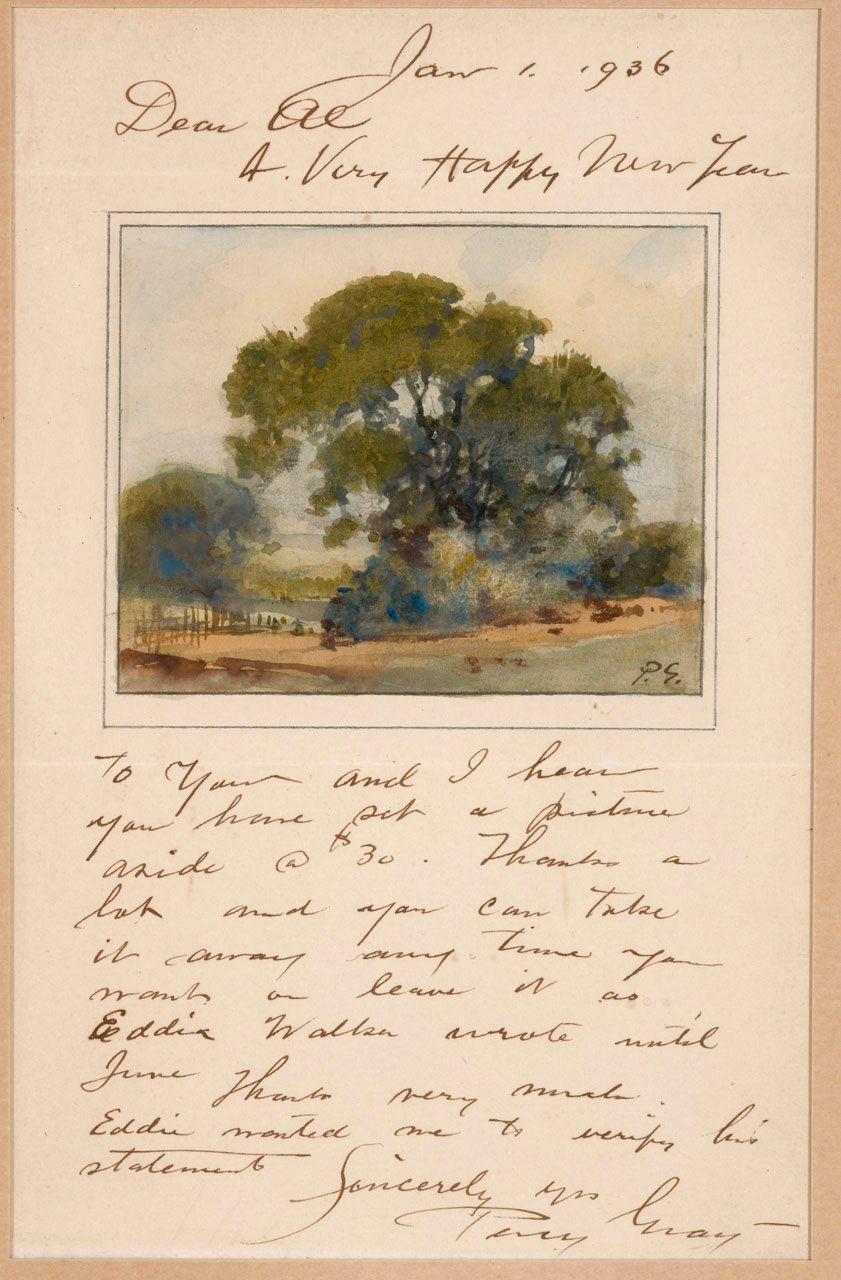 Jan 1. 1936
Dear Al
A. Very Happy New Year
P. G.
to You and I hear
you have set a picture
aside @ $30. Thanks a
lot and you can take
it away any time you
want or leave it as
Eddie Walker wrote until
June Thanks very much.
Eddie wanted me to verify his
statement
Sincerely yrs
Percy Gray